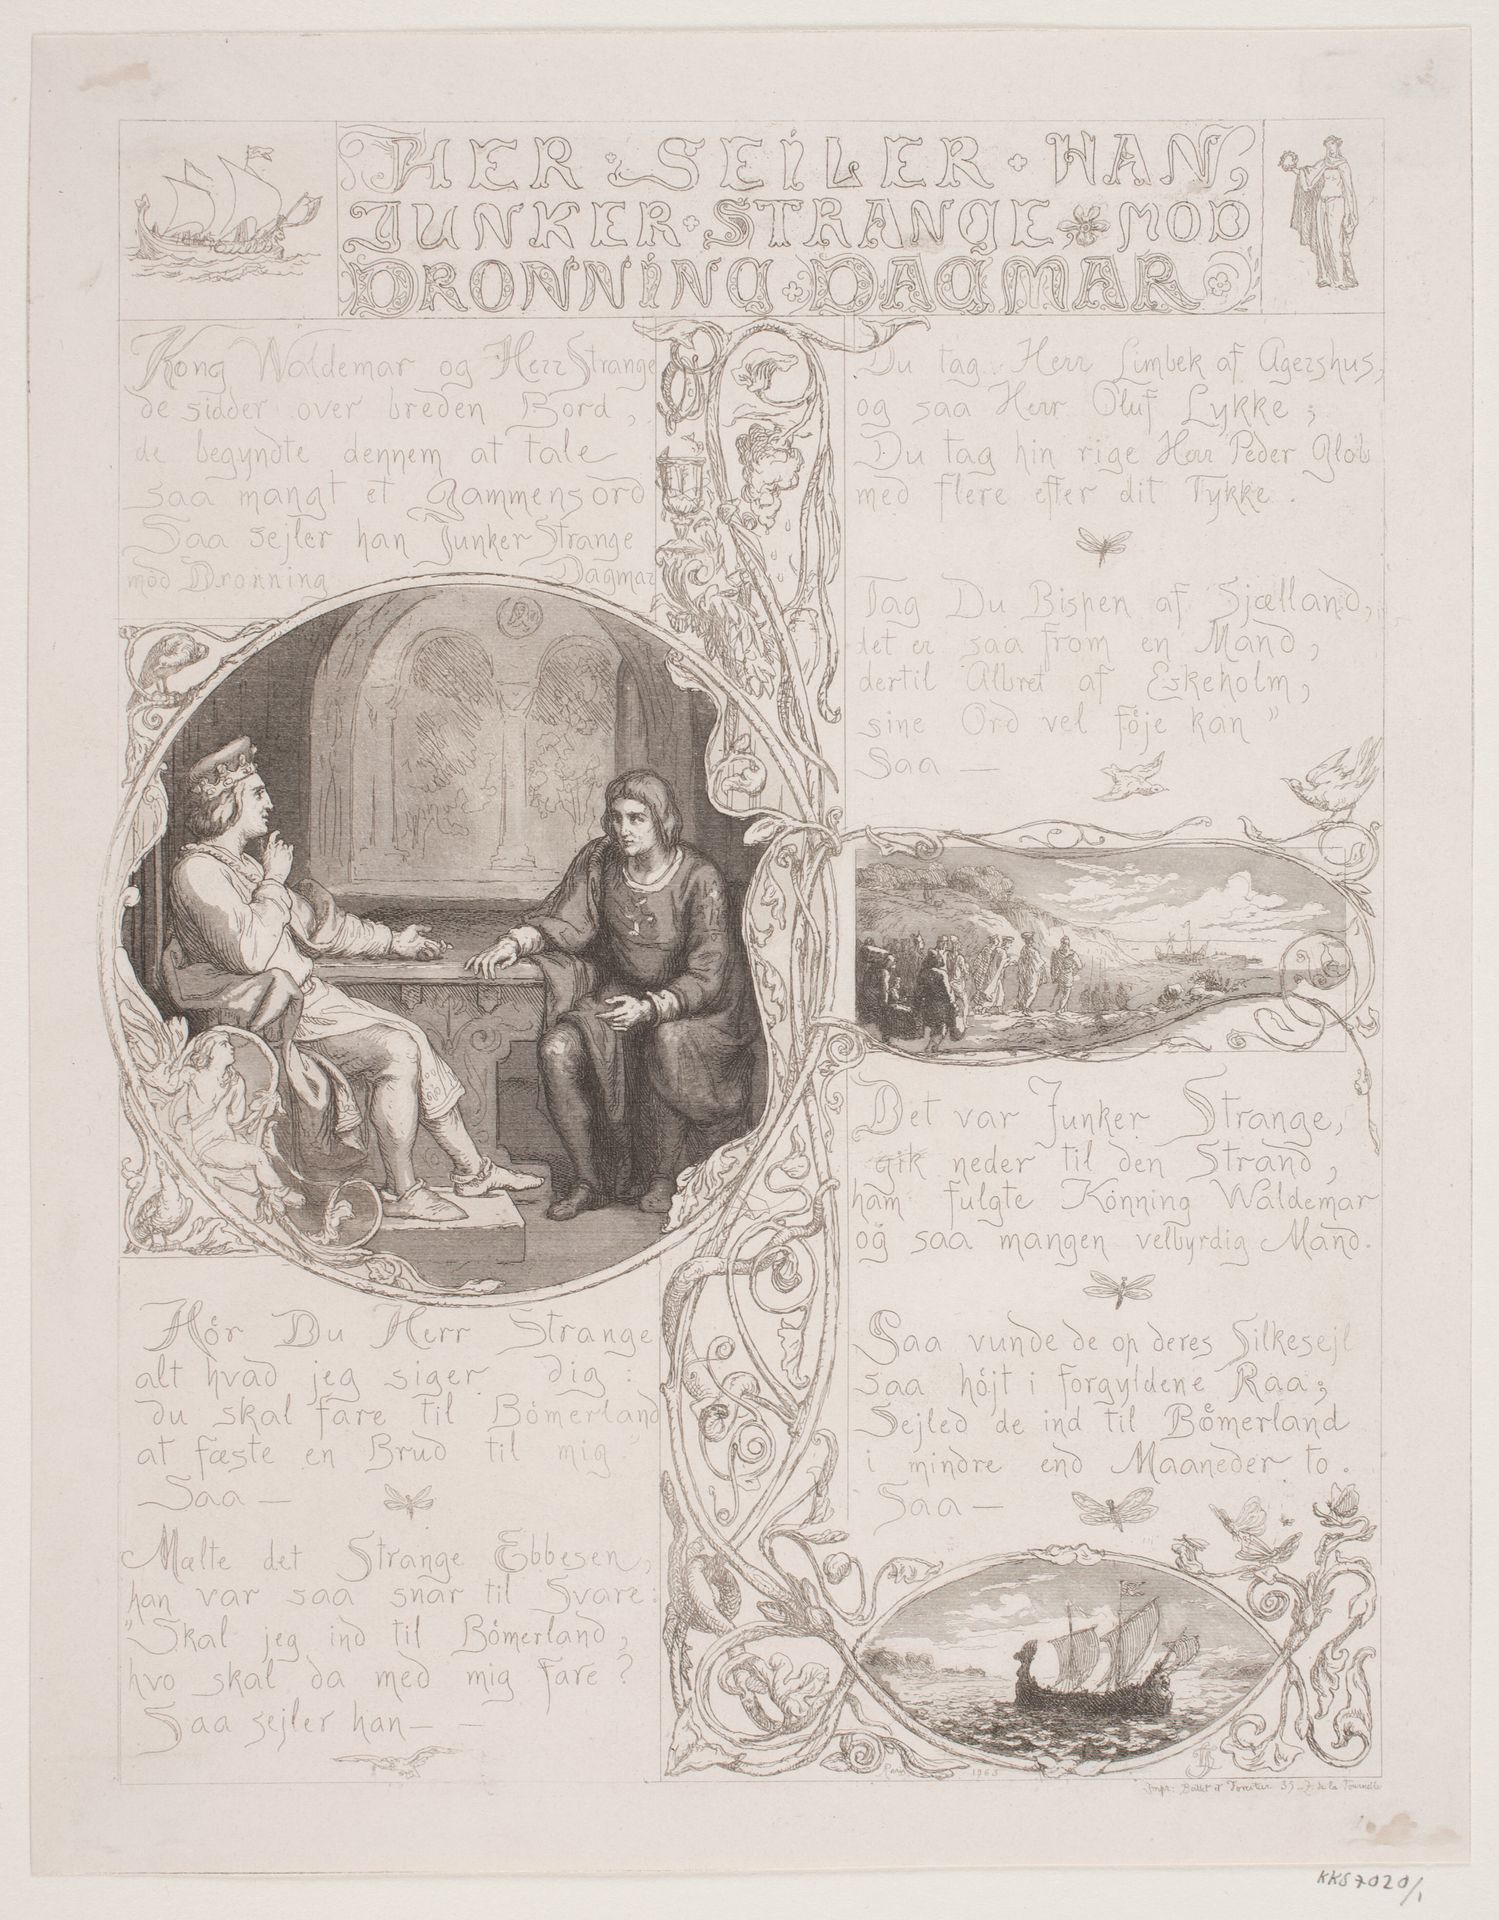 HER SEILER HAN,
JUNKER STRANGE MOD
DRONNING DAGMAR
Kong Waldemar og Herr Strange
de sidder over breden Bord,
de begyndte dennem at tale
saa mangt et Gammensord
Saa sejler han Junker Strange
mod Dronning Dagmar
Hör Du Herr Strange
alt hvad jeg siger dig:
du skal fare til Bömerland
at fæste en Brud til mig"
Saa —
Mælte det Strange Ebbesen,
han var saa snar til Svare:
"Skal jeg ind til Bömerland,
hvo skal da med mig fare?
Saa sejler han — —
Du tag Herr Limbek af Agershus,
og saa Herr Oluf Lykke;
Du tag hin rige Herr Peder Glob
med flere efter dit Tykke.
Tag Du Bispen af Sjælland,
det er saa from en Mand,
dertil Albret af Eskeholm,
sine Ord vel föje kan"
Saa —
Det var Junker Strange,
gik neder til den Strand,
ham fulgte Könning Waldemar
og saa mangen velbyrdig Mand.
Saa vunde de op deres Silkesejl
saa höjt i forgyldene Raa;
Sejled de ind til Bömerland
i mindre end Maaneder to.
Saa —
Paris 1863
Impr: de la Tournelle
KKS7020/1